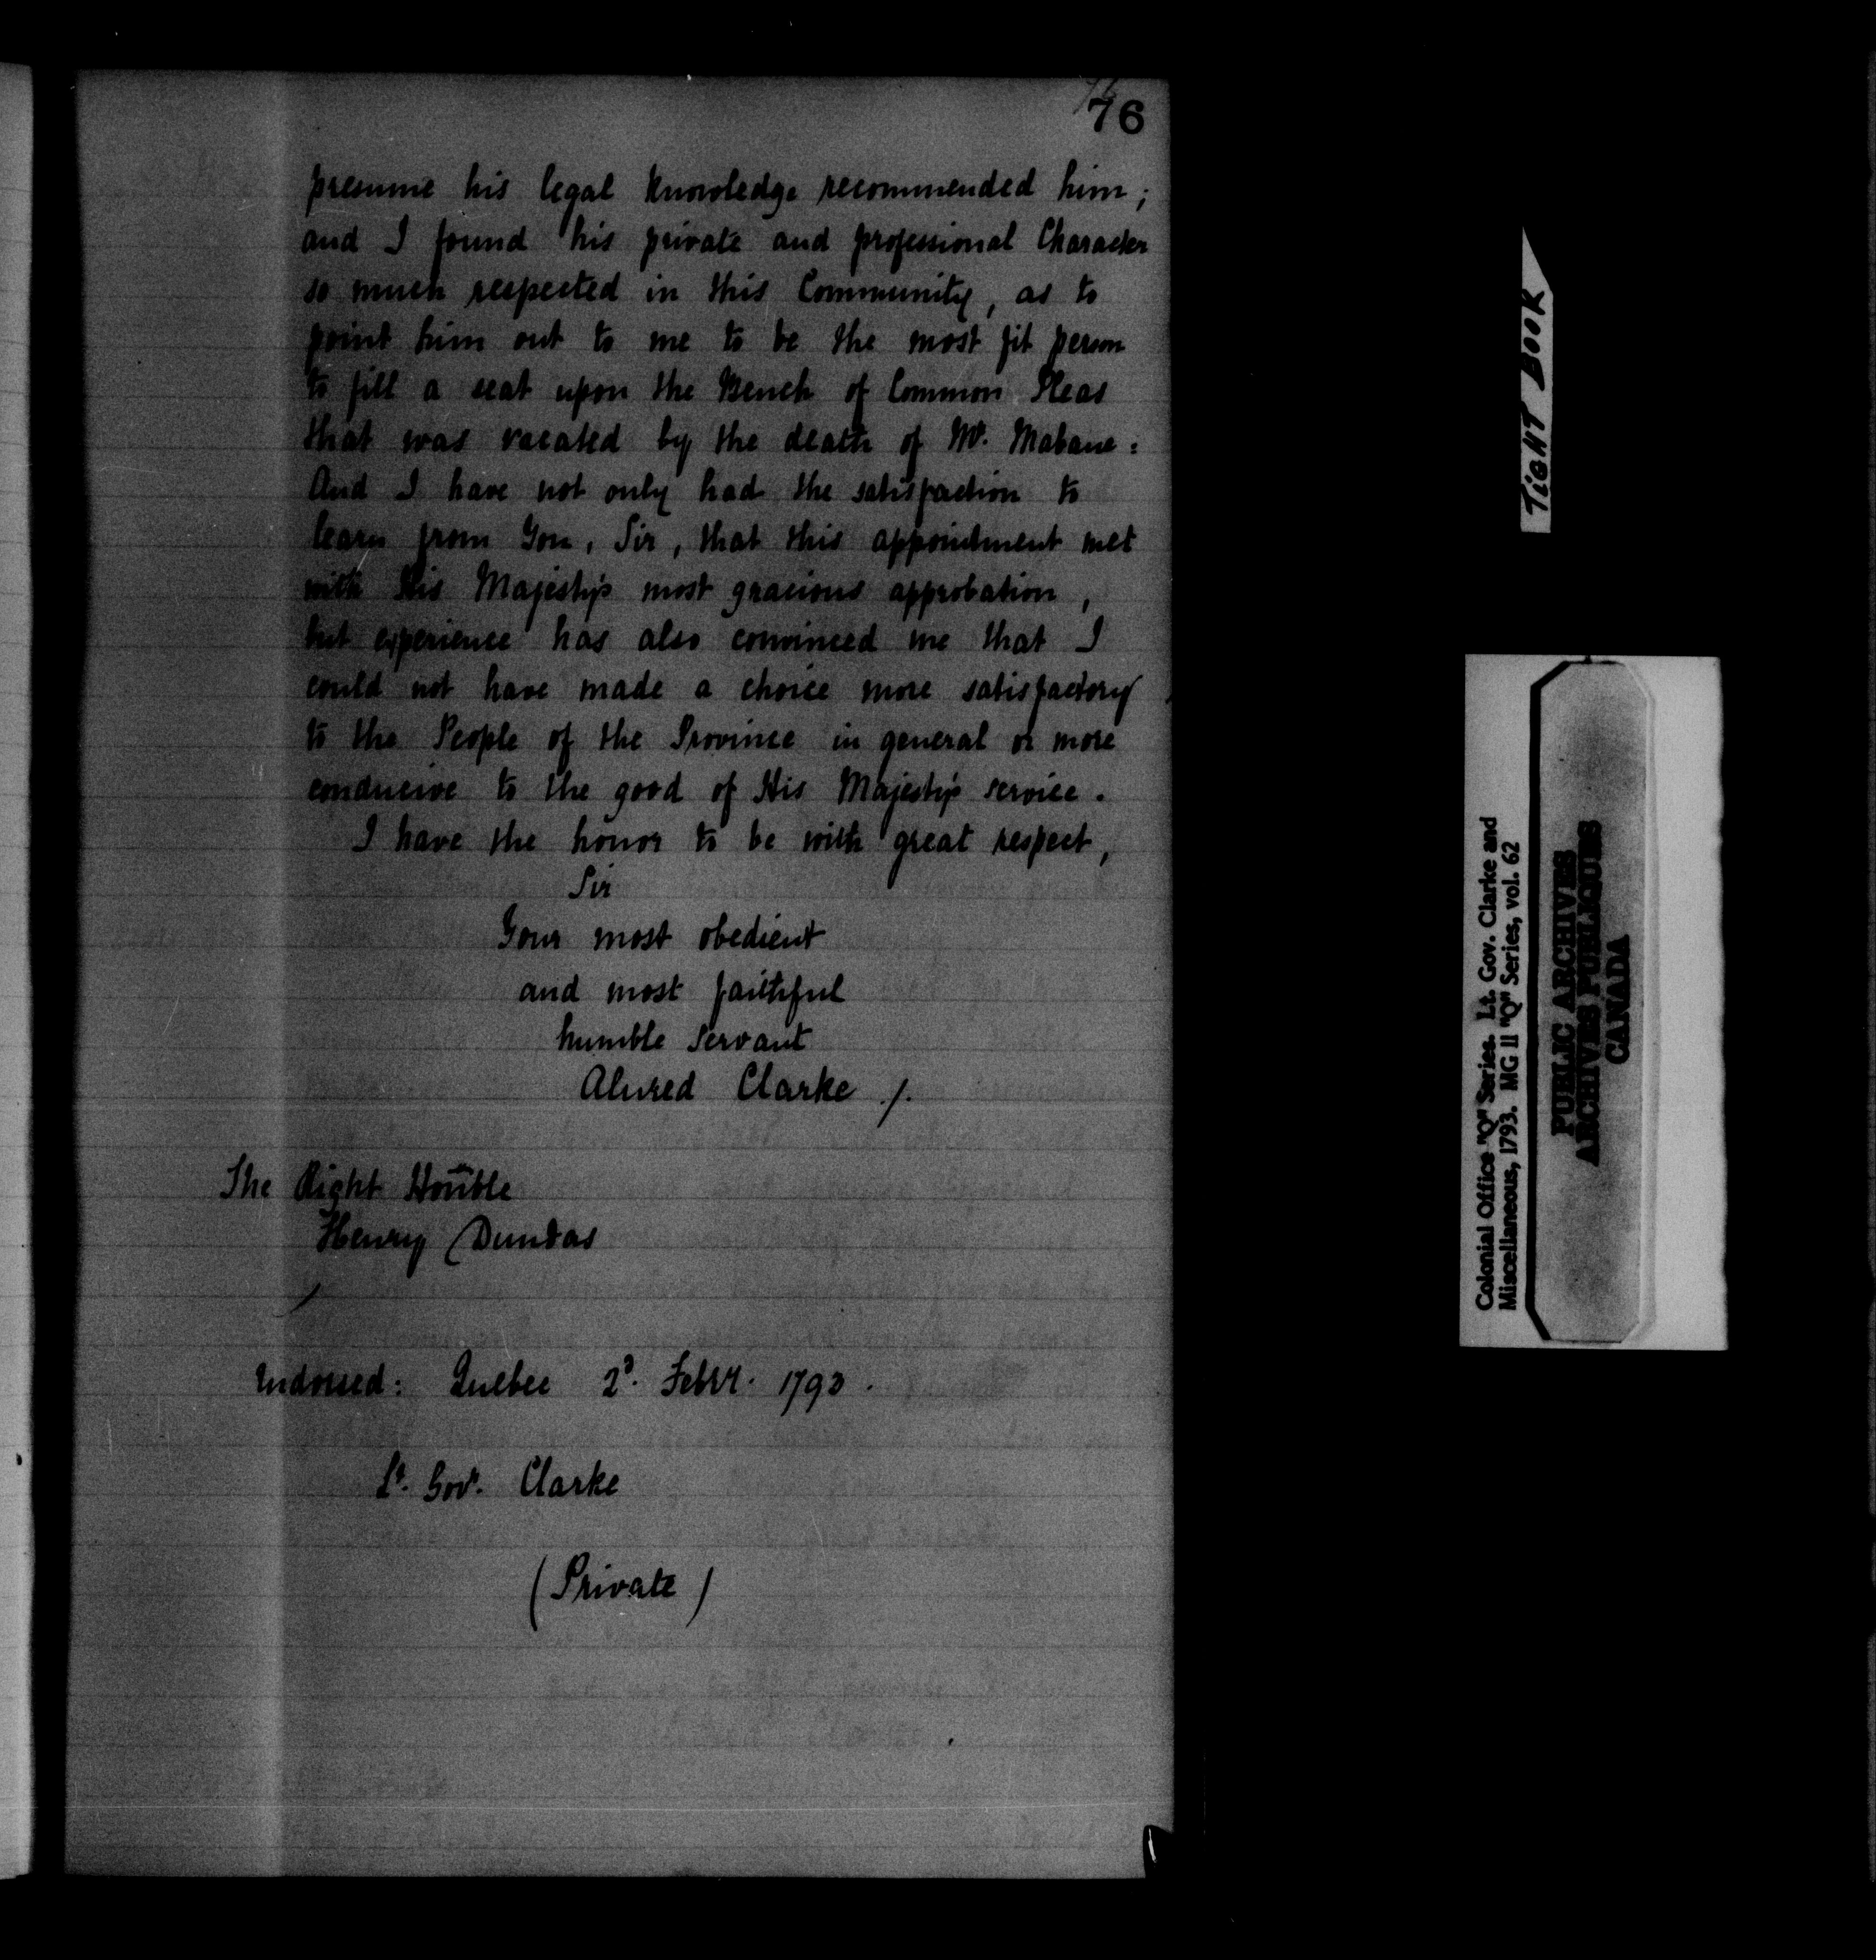 76
76
presume his legal knowledge recommended him;
and I found his private and professional Character
so much respected in this Community, as to
point him out to me to be the most fit person
to fill a seat upon the Bench of Common Pleas
that was vacated by the death of Mr. Mabane:
And I have not only had the satisfaction to
learn from You, Sir, that this appointment met
with His Majesty's most gracious approbation,
but experience has also convinced me that I
could not have made a choice more satisfactory
to the People of the Province in general or more
conducive to the good of His Majesty's service.
I have the honor to be with great respect,
Sir
Your most obedient
and most faithful
humble servant
Alured Clarke /.
The Right Honble
Henry Dundas
Indorsed: Quebec 2d. Febry. 1793.
Lt. Govr. Clarke
(Private)
TIGHT BOOK
Colonial Office "Q" Series. Lt. Gov. Clarke and
Miscellaneous, 1793. MG 11 "Q" Series, vol. 62
PUBLIC ARCHIVES
ARCHIVES PUBLIQUES
CANADA